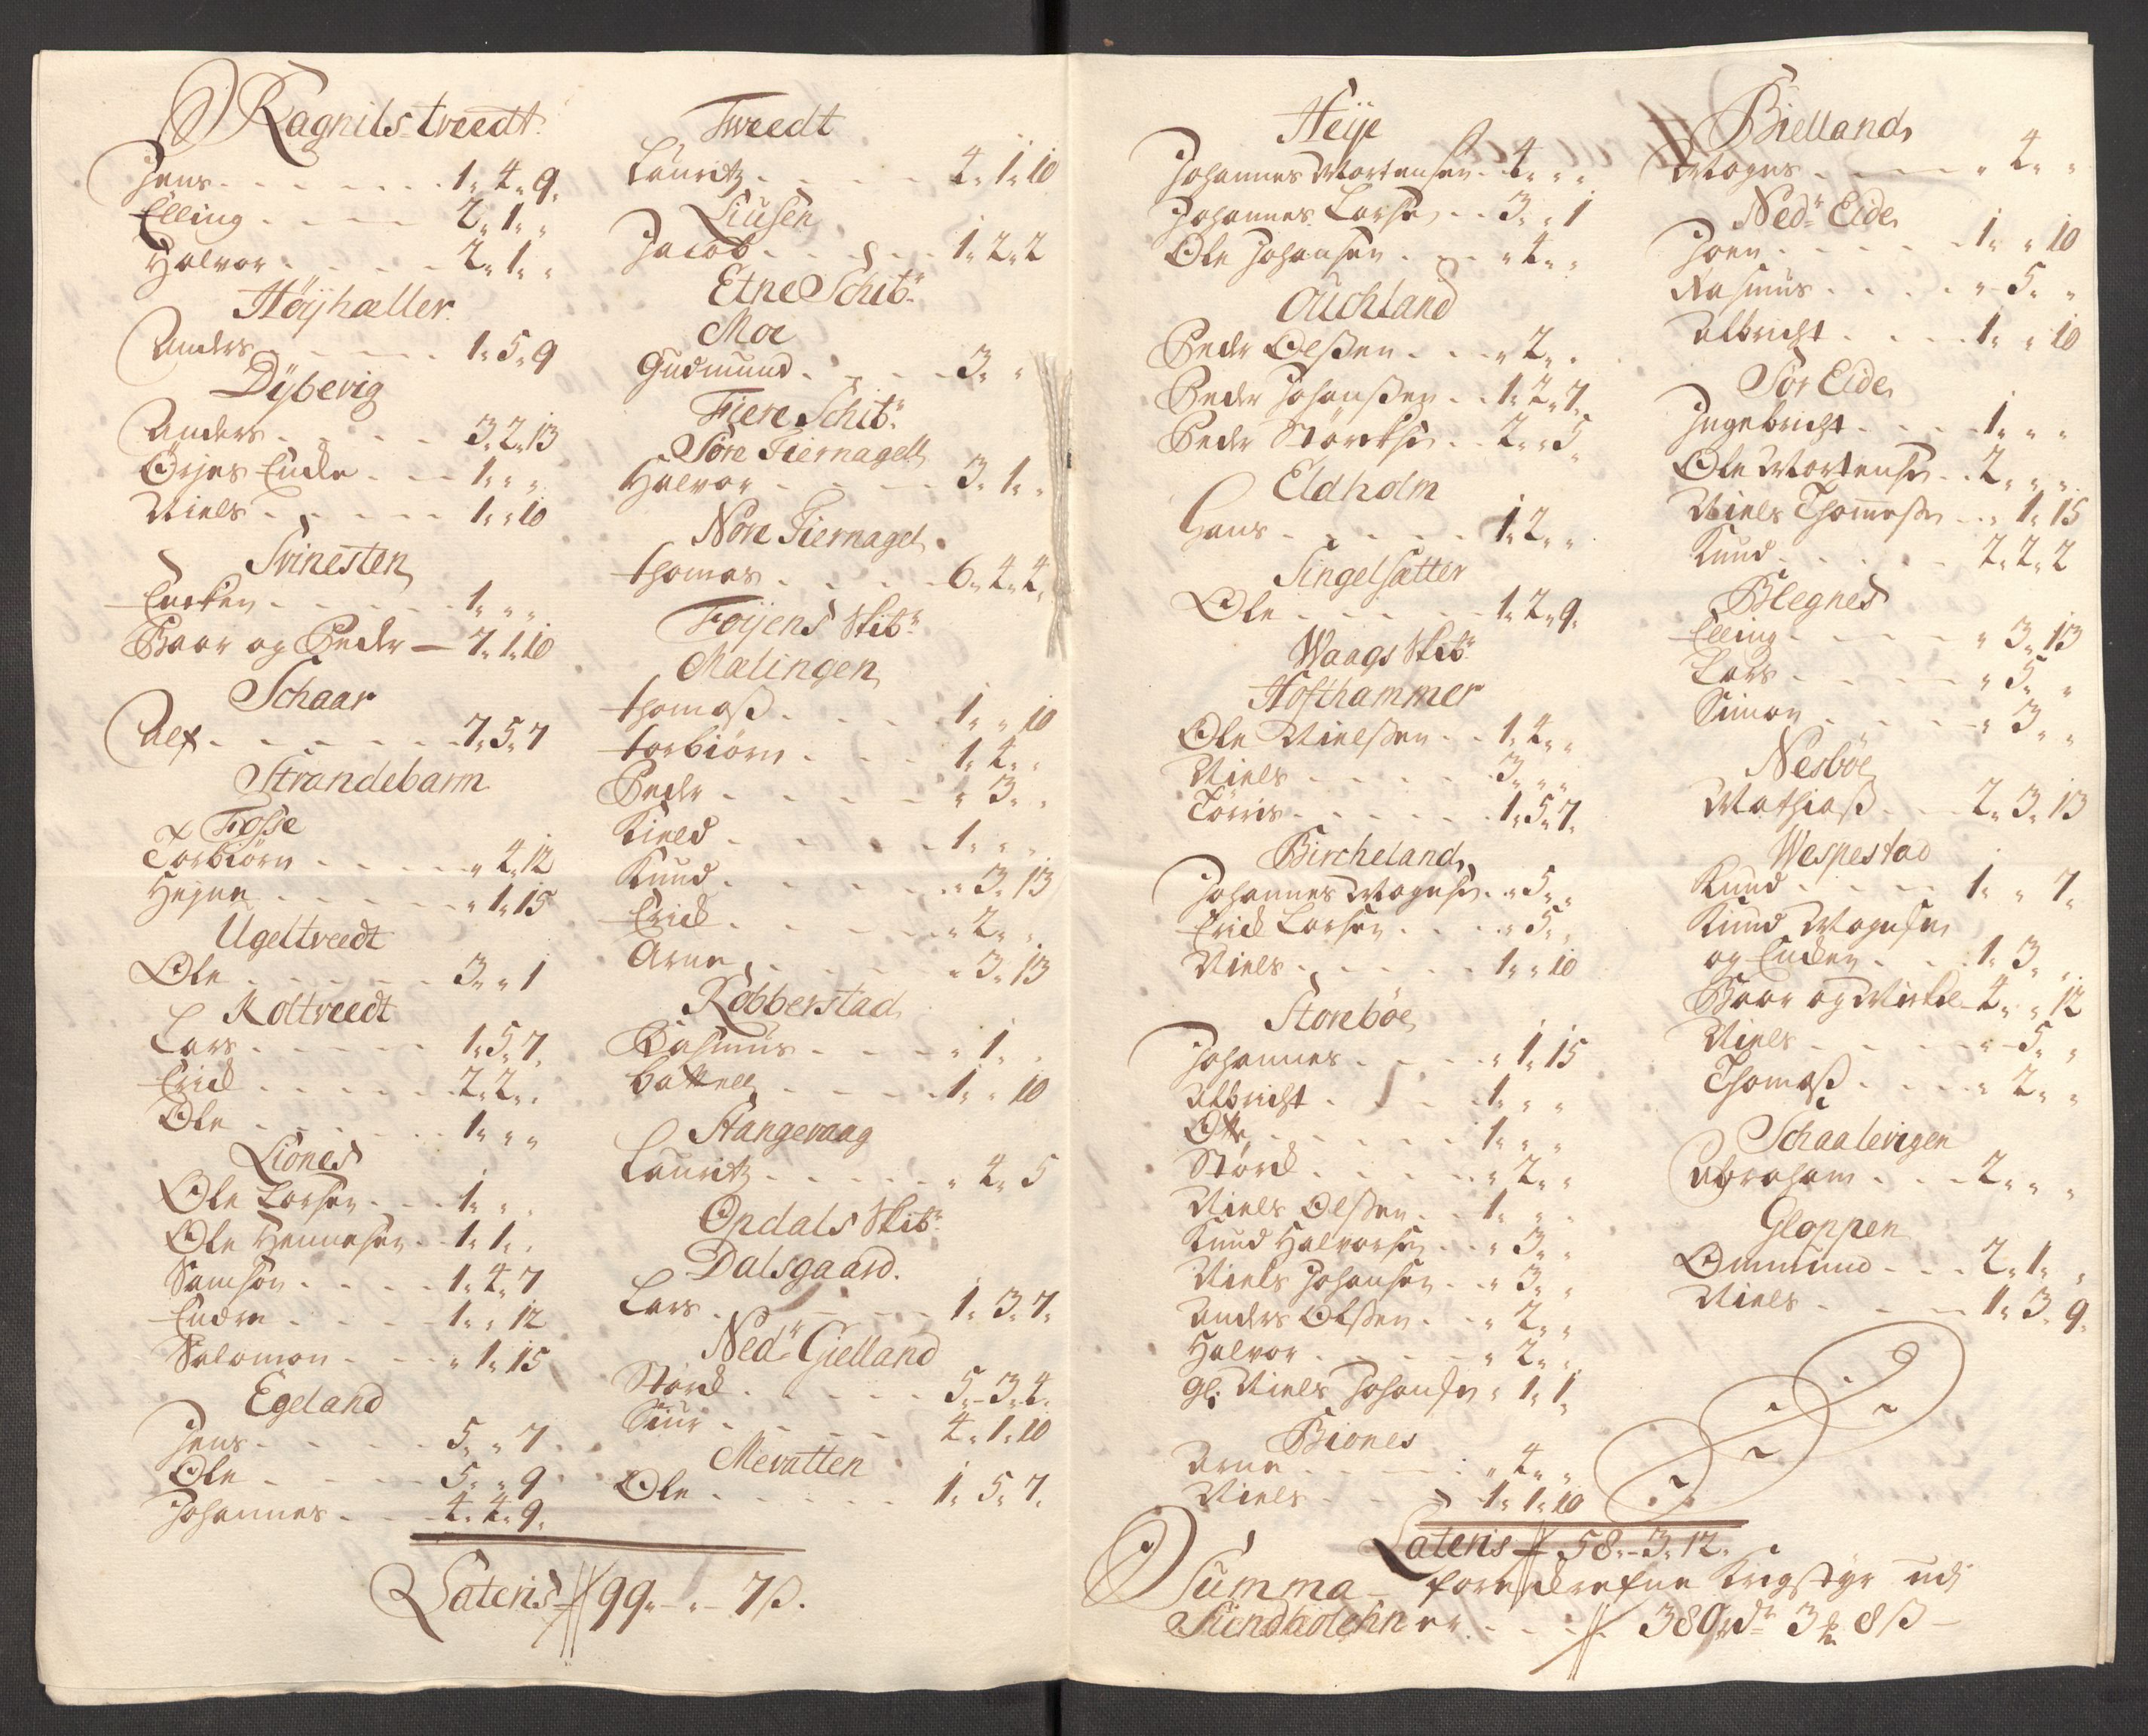 Ragnils treedt
Jens . . . . . . . 1„ 4„ 9„
Elling . . . . . 2„ 1„ „
Halvor . . . . . 2„ 1„ „
Höÿhæller
Anders . . . . . 1„ 5„ 9
Dÿbevig
Anders . . . . . 3„ 2„ 13
Örjes Encke . . . 1„ „ „
Niels . . . . . 1„ „ 10
Svinesten
Encken . . . . . 1„ „ „
Baar og Peder — 7„ 1„ 10
Schaar
Alf . . . . . . 7„ 5„ 7
Strandebarm
Fosse
Torbiörn . . . . . „ 4„ 12
Hejne . . . . . „ 1„ 15
Ugeltvedt
Ole . . . . . 3„ „ 1
Koltvedt
Lars . . . . . 1„ 5„ 7„
Erick . . . . . 2„ 2„ „
Ole . . . . . 1„ „ „
Liones
Ole Larsen . . . 1„ „ „
Ole Hennesen . . 1„ 1„ „
Samson . . . . 1„ 4„ 7
Endre . . . . 1„ „ 12
Salomon . . . „ 1„ 15
Egeland
Jens . . . . . 5„ „ 7
Ole . . . . . 5„ „ 9
Johannes . . . 4„ 4„ 9„
Tweedt
Lauritz . . . . . 4„ 1„ 10
Liusen
Jacob . . . . . 1„ 2„ 2
Etne Schibr
Moe
Gudmund . . . . 3„ „
Fiere Schibr
Söre Fiernagell
Halvor . . . . . 3„ 1„ „
Nore Fiernagel
Thomas . . . . . 6„ 4„ 4„
Foÿens Skibr
Mælingen
Thomass . . . . 1„ „ 10
Torbiörn . . . . 1„ 4„ „
Peder . . . . . „ 3„ „
Kield . . . . . 1„ „ „
Knud . . . . . „ 3„ 13
Erick . . . . . „ 2„ „
Arne . . . . . „ 3„ 13
Robberstad
Rasmus . . . . „ 1„ „
Battell . . . . 1„ „ 10
Stangevaag
Lauritz . . . . . „ 4„ 5
Opdals Skibr
Dalsgaard.
Lars . . . . . 1„ 3„ 7„
Nedr Gielland
Störck . . . . . 5„ 3„ 4„
Siur . . . . . 4„ 1„ 10
Mevatten
Ole . . . . . 1„ 5„ 7„
Lateris 99„ „ 7ß.
Heÿe
Johannes Mortensen . 4„ „ „
Johannes Larsen . . 3„ „ 1
Ole Johansen . . . „ 4„ „
Ouchland
Peder Olssen . . . „ 2„ „
Peder Johanssen . . 1„ 2„ 7„
Peder Störcksen . . 2„ „ 5„
Eldholm
Hans . . . . . 1„ 2„ „
Singelsætter
Ole . . . . . 1„ 2„ 9„
Waags Skibr
Hofthammer
Ole Nielssen . . 1„ 4„ „
Niels . . . . . 3„ „ „
Törris . . . . . 1„ 5„ 7„
Bircheland
Johannes Mognesen . „ 5„ „
Erick Larsen . . . „ 5„ „
Niels . . . . . 1„ „ 10
Storeböe
Johannes . . . . „ 1„ 15
Albricht . . . . 1„ „ „
Otte . . . . . 1„ „ „
Störck . . . . . „ 2„ „
Niels Olssen . . . 1„ „ „
Knud Halvorsen . . „ 3„ „
Niels Johansen . . „ 3„ „
Anders Olssen . . „ 2„ „
Halvor . . . . . „ 2„ „
Gl: Niels Johansen „ 1„ 1„
Biones
Arne . . . . . „ 4„ „
Niels . . . . . 1„ 1„ 10
Bielland
Mogns . . . . „ 4„ „
Nedr Eide
Joen . . . . . 1„ „ 10
Rasmus . . . . „ 5„ „
Albricht . . . . 1„ „ 10
Sör Eide
Ingebricht . . . . 1„ „ „
Ole Mortensen . . 2„ „ „
Niels Thomessen . . „ 1„ 15
Knud . . . . . 2„ 2„ 2
Blegnes
Elling . . . . . „ 3„ 13
Lars . . . . . „ 5„ „
Simon . . . . . „ 3„ „
Nesböe
Mathiass . . . 2„ 3„ 13
Wespestad
Knud . . . . . 1„ „ 7„
Knud Mognesen
og Encken . . . 1„ 3„ „
Baar og Michel 4„ „ 12
Niels . . . . . „ 5„ „
Thomass . . . . „ 2„ „
Schaalevigen
Abraham . . . 2„ „ „
Gloppen
Ommund . . . 2„ 1„ „
Niels . . . . 1„ 3„ 9„
Lateris 58„ 3„ 12„
Summa forschrefne Krigstÿr udj
Sundholehn er . . . 380 rdr 3 8ß